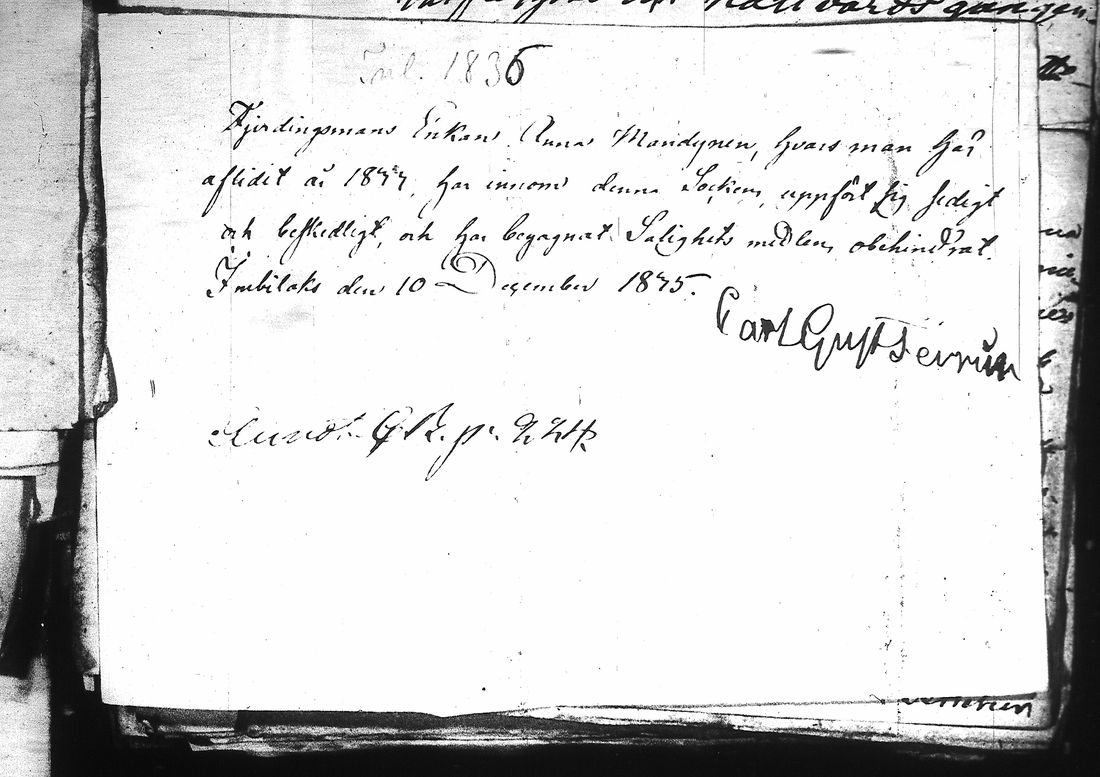 Hallvards
Inl. 1836
Fjerdingsmans Enkan Anna Mandynen, hvars man här
aflidit år 1877, har innom denna Socken, uppfört sig sedigt
och beskedligt, och har begagnat Salighets medlen obehindrat.
Imbilaks den 10 December 1875.
Carl Gust
R. pr.